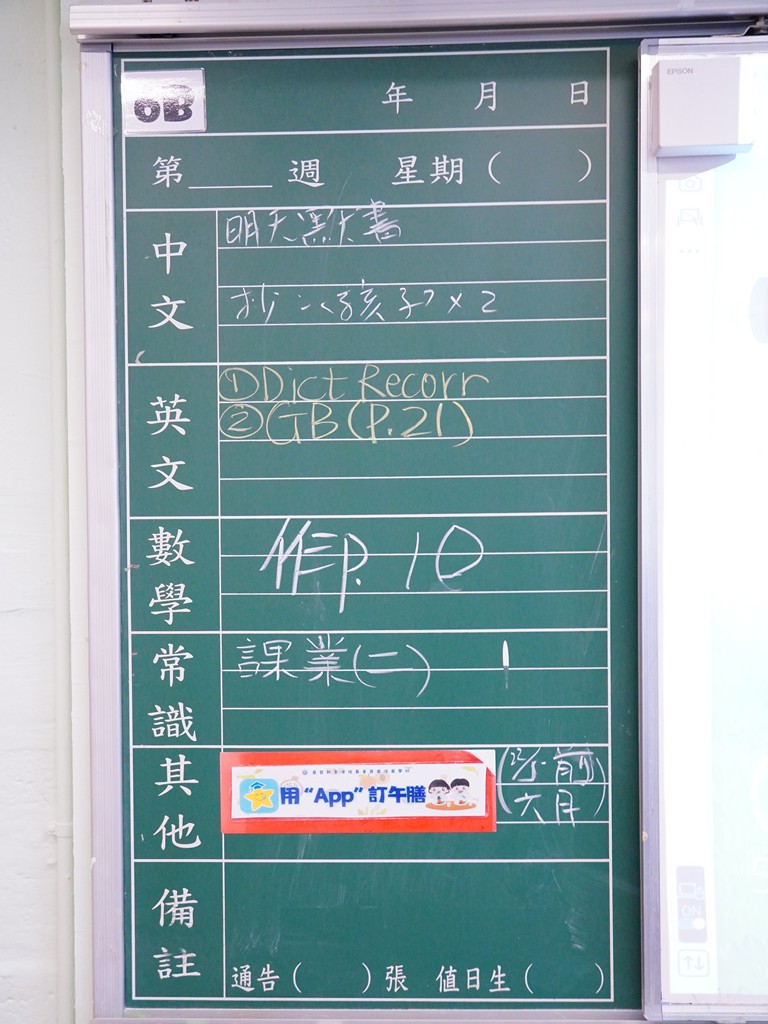 6B
年 月 日
第____週 星期( )
中文
明天默書
抄<孩子>×2
英文
①Dict Recorr
②GB(P.21)
數學
作P.10
常識
課業(二)
其他
用“App”訂午膳
(22/5前)
(六月)
備註
通告( )張 值日生( )
EPSON
ON